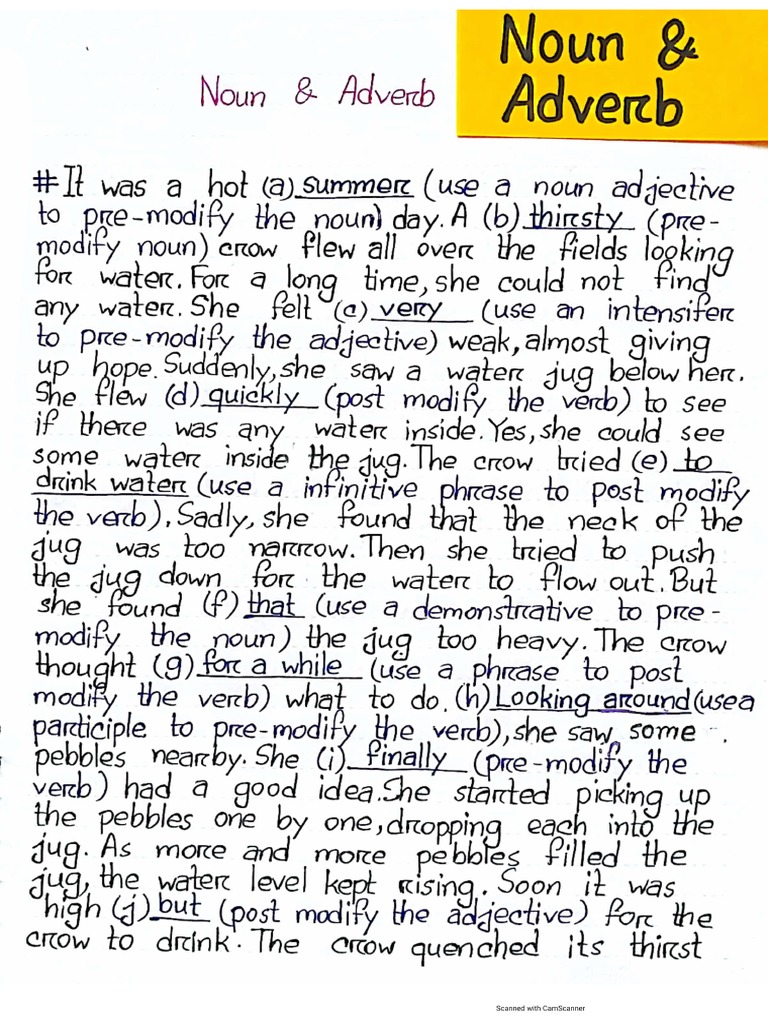 Noun &
Adverb
Noun & Adverb
#It was a hot (a) summer (use a noun adjective
to pre-modify the noun) day. A (b) thirsty (pre-
modify noun) crow flew all over the fields looking
for water. For a long time, she could not find
any water. She felt (c) very (use an intensifer
to pre-modify the adjective) weak, almost giving
up hope. Suddenly, she saw a water jug below her.
She flew (d) quickly (post modify the verb) to see
if there was any water inside. Yes, she could see
some water inside the jug. The crow tried (e) to
drink water (use a infinitive phrase to post modify
the verb). Sadly, she found that the neck of the
jug was too narrow. Then she tried to push
the jug down for the water to flow out. But
she found (f) that (use a demonstrative to pre-
modify the noun) the jug too heavy. The crow
thought (g) for a while (use a phrase to post
modify the verb) what to do. (h) Looking around (use a
participle to pre-modify the verb), she saw some
pebbles nearby. She (i) finally (pre-modify the
verb) had a good idea. She started picking up
the pebbles one by one, dropping each into the
jug. As more and more pebbles filled the
jug, the water level kept rising. Soon it was
high (j) but (post modify the adjective) for the
crow to drink. The crow quenched its thirst
Scanned with CamScanner